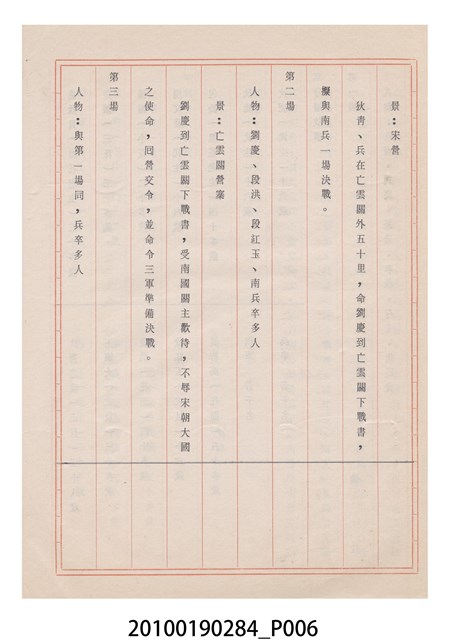 景：宋營
狄青、兵在亡雲關外五十里，命劉慶到亡雲關下戰書，
擬與南兵一場決戰。
第二場
人物：劉慶、段洪、段紅玉、南兵卒多人
景：亡雲關營寨
劉慶到亡雲關下戰書，受南國關主歡待，不辱宋朝大國
之使命，回營交令，並命令三軍準備決戰。
第三場
人物：與第一場同，兵卒多人
20100190284_P006